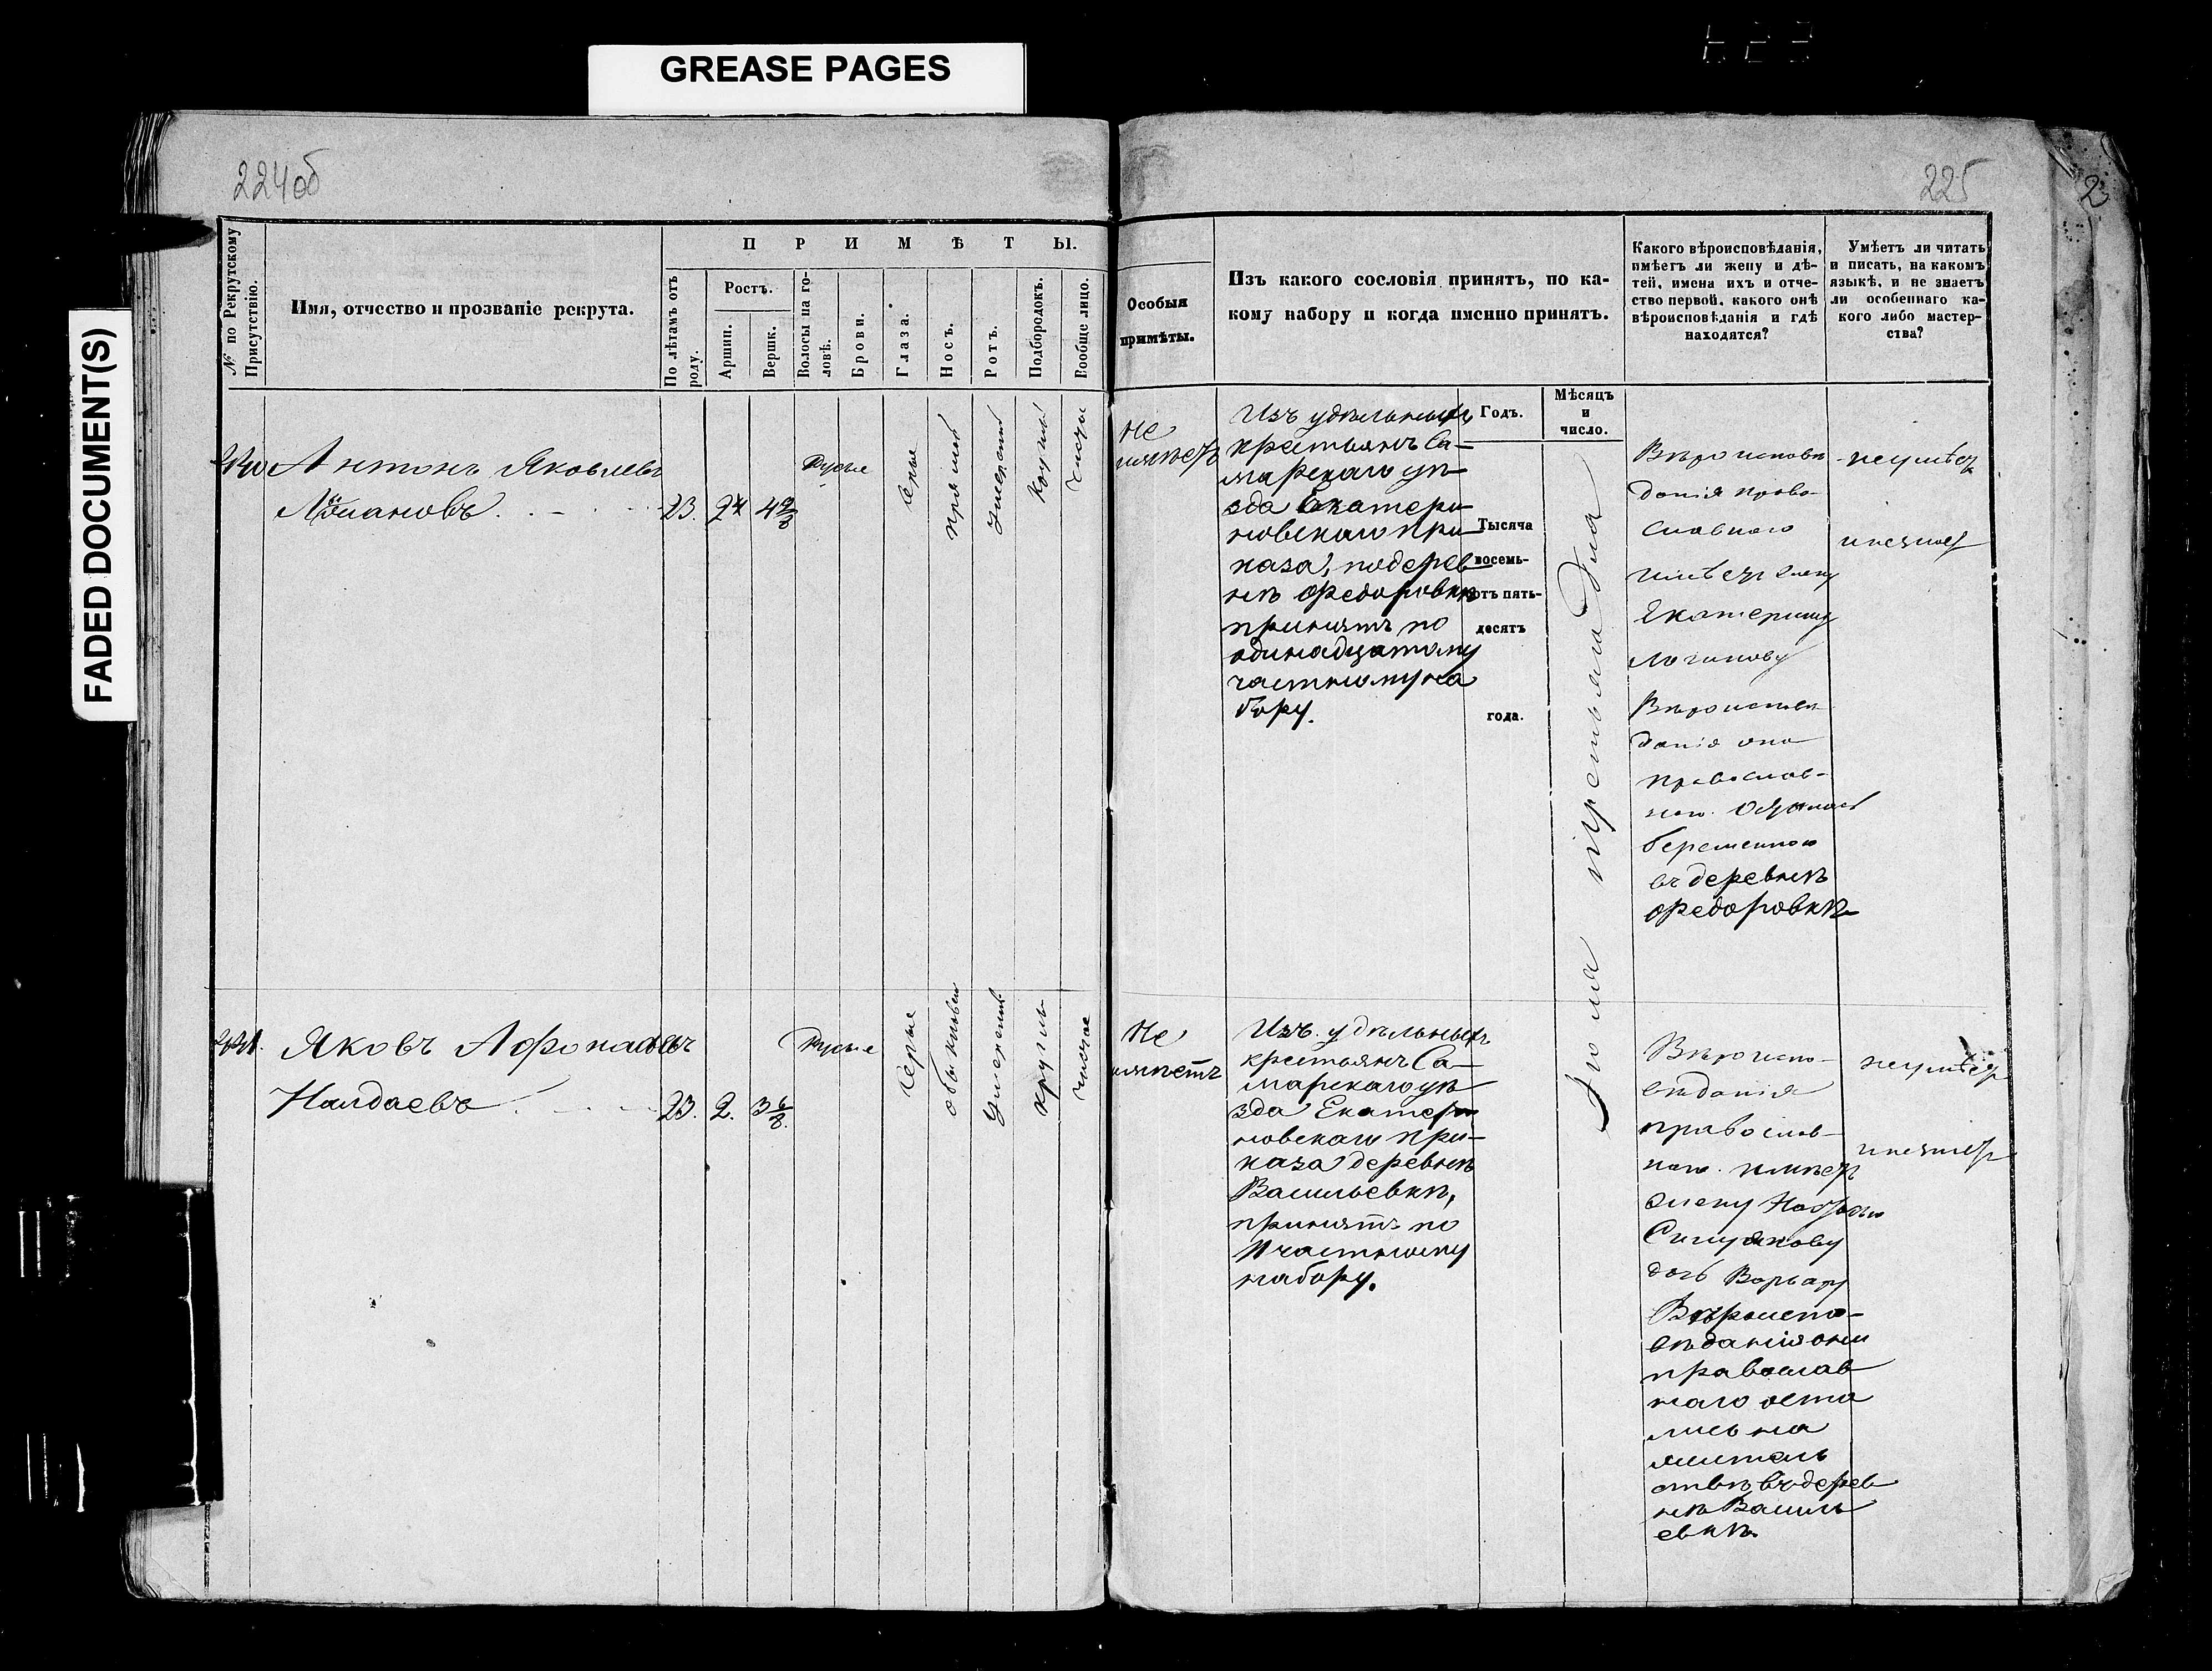 GREASE PAGES
FADED DOCUMENT(S)
224об
225
2
№ по Рекрутскому Присутствію.
Имя, отчество и прозваніе рекрута.
ПРИМѢТЫ.
По лѣтамъ отъ роду.
Ростъ.
Аршин.
Вершк.
Волосы на головѣ.
Брови.
Глаза.
Носъ.
Ротъ.
Подбородокъ.
Вообще лицо.
Особыя
примѣты.
Изъ какого сословія принятъ, по ка-
кому набору и когда именно принятъ.
Какого вѣроисповѣданія,
имѣетъ ли жену и дѣ-
тей, имена ихъ и отче-
ство первой, какого онѣ
вѣроисповѣданія и гдѣ
находятся?
Умѣетъ ли читать
и писать, на какомъ
языкѣ, и не знаетъ
ли особеннаго ка-
кого либо мастер-
ства?
Годъ.
Мѣсяцъ
и
число.
Тысяча
восемь-
сотъ пять-
десятъ
года.
Іюля третьяго дня
Антонъ Яковлевъ
23. 2 4
Русые
Сѣрые
прямой
умеренный
Круглый
Чистое
Не
имѣетъ
Изъ удѣльныхъ
крестьянъ Са-
марскаго уѣ-
зда Екатери-
новскаго при-
каза, подерев-
нѣ Федоровкѣ
принятъ по
одинадцатому
частному на
бору.
Вѣроисповѣ
данія право-
славнаго
имѣетъ жену
Екатерину
Логинову
Вѣроисповѣ
данія она
православ-
наго. Осталась
беременною
въ деревнѣ
Федоровкѣ
неумѣетъ
инезнает
Яковъ Афонасьевъ
Налдаевъ
23. 2. 3 6/8.
Русые
Серые
обыкновен
Умеренный
круглъ
чистое
Не
имѣетъ
Изъ удѣльныхъ
крестьянъ Са-
марскаго уѣ
зда Екатери
новскаго при-
каза деревнѣ
Васильевкѣ,
принятъ по
11 частному
набору.
Вѣроиспо-
вѣданія
православ-
наго. имѣетъ
жену
дочь Варвару
Вѣроиспо-
вѣданія они
православ
наго оста
лись на
жительствѣ
въ дерев
нѣ Василь
евкѣ.
неумѣетъ
инезнает